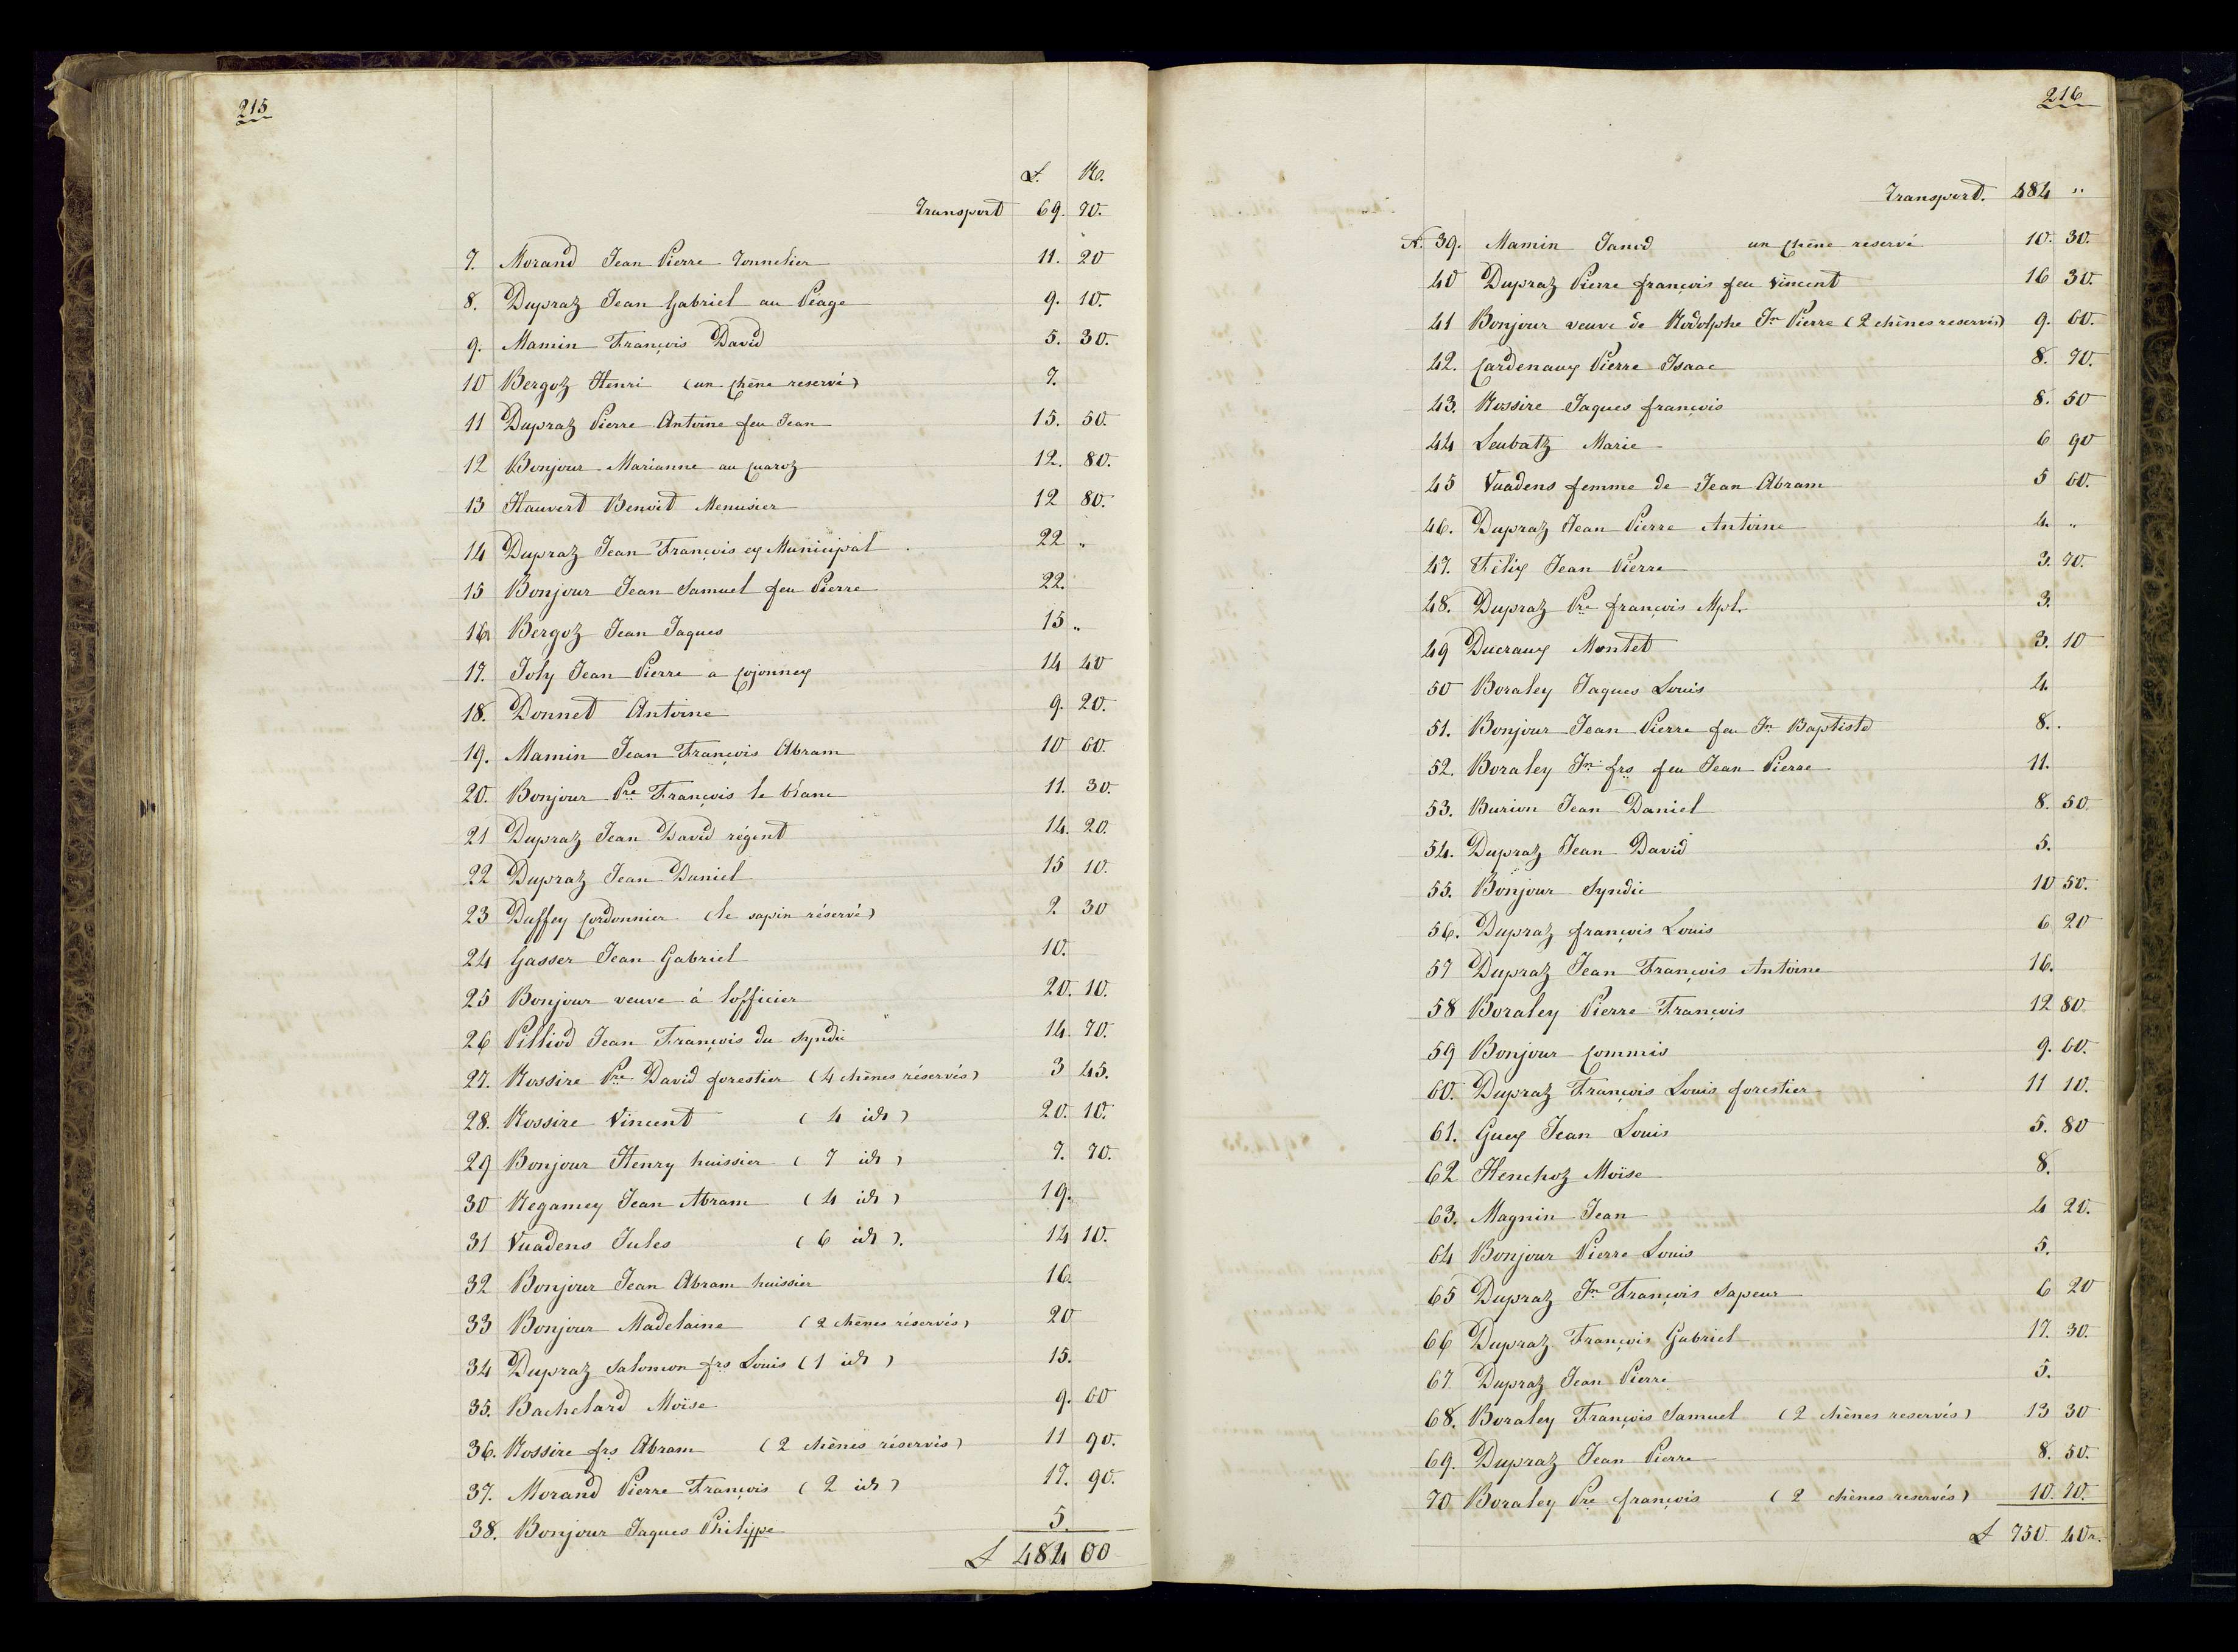 215
L. Rp.
Transport 69. 70.
7. Morand Jean Pierre Tonnelier 11. 20
8. Dupraz Jean Gabriel au Péage 9. 10.
9. Mamin François David 5. 30.
10 Bergoz Henri (un chêne reservé) 7.
11 Dupraz Pierre Antoine feu Jean 15. 50.
12 Bonjour Marianne au Quaroz 12. 80.
13 Hauvert Benoit Menusier 12 80.
14 Dupraz Jean François ex Municipal 22 "
15 Bonjour Jean Samuel feu Pierre 22.
16 Bergoz Jean Jaques 15 "
17. Joly Jean Pierre a Cojonnex 14 40
18. Donnet Antoine 9. 20.
19. Mamin Jean François Abram 10 60.
20. Bonjour Pre François le blanc 11. 30.
21 Dupraz Jean David régent 14. 20.
22 Dupraz Jean Daniel 15 10.
23 Duffey Cordonnier (le sapin réservé) 2 30
24 Gasser Jean Gabriel 10.
25 Bonjour veuve à l'officier 20. 10.
26 Pilliod Jean François du Syndic 14. 70.
27. Rossire Pre David forestier (4 chênes réservés) 3 45.
28. Rossire Vincent (4 id) 20. 10.
29 Bonjour Henry huissier (7 id) 7. 70.
30 Regamey Jean Abram (4 id) 19.
31 Vuadens Jules (6 id). 14 10.
32 Bonjour Jean Abram huissier 16.
33 Bonjour Madelaine (2 chênes réservés) 20
34 Dupraz Salomon frs Louis (1 id) 15.
35. Bachelard Moïse 9. 60
36. Rossire frs Abram (2 chênes réservés) 11 90.
37. Morand Pierre François (2 id) 17. 90.
38. Bonjour Jaques Philippe 5.
L 484 00
216
Transport. 484 "
N. 39. Mamin Jancd un chêne reservé 10. 30.
40 Dupraz Pierre françois feu Vincent 16 30.
41 Bonjour veuve de Rodolphe Jn Pierre (2 chênes reservés) 9. 60.
42. Cardenaux Pierre Isaac 8. 70.
43. Rossire Jaques françois 8. 50
44 Leubatz Marie 6 90
45 Vuadens femme de Jean Abram 5 60.
46. Dupraz Jean Pierre Antoine 4. "
47. Félix Jean Pierre 3. 70.
48. Dupraz Pre françois Mpl. 3.
49 Ducraux Montet 3. 10
50 Boraley Jaques Louis 4.
51. Bonjour Jean Pierre feu Jn Baptiste 8.
52. Boraley Jn frs feu Jean Pierre 11.
53. Burion Jean Daniel 8. 50.
54. Dupraz Jean David 5.
55. Bonjour Syndic 10 50.
56. Dupraz françois Louis 6 20
57 Dupraz Jean François Antoine 16.
58 Boraley Pierre François 12 80
59 Bonjour Commis 9. 60.
60. Dupraz François Louis forestier 11 10.
61. Guex Jean Louis 5. 80
62 Henchoz Moïse 8.
63. Magnin Jean 4 20.
64 Bonjour Pierre Louis 5.
65 Dupraz Jn François Sapeur 6 20
66 Dupraz François Gabriel 17. 30.
67. Dupraz Jean Pierre 5.
68. Boraley François Samuel (2 chênes reservés) 13 30
69. Dupraz Jean Pierre 8. 50.
70 Boraley Pre françois (2 chênes reservés) 10. 10.
L 750. 40